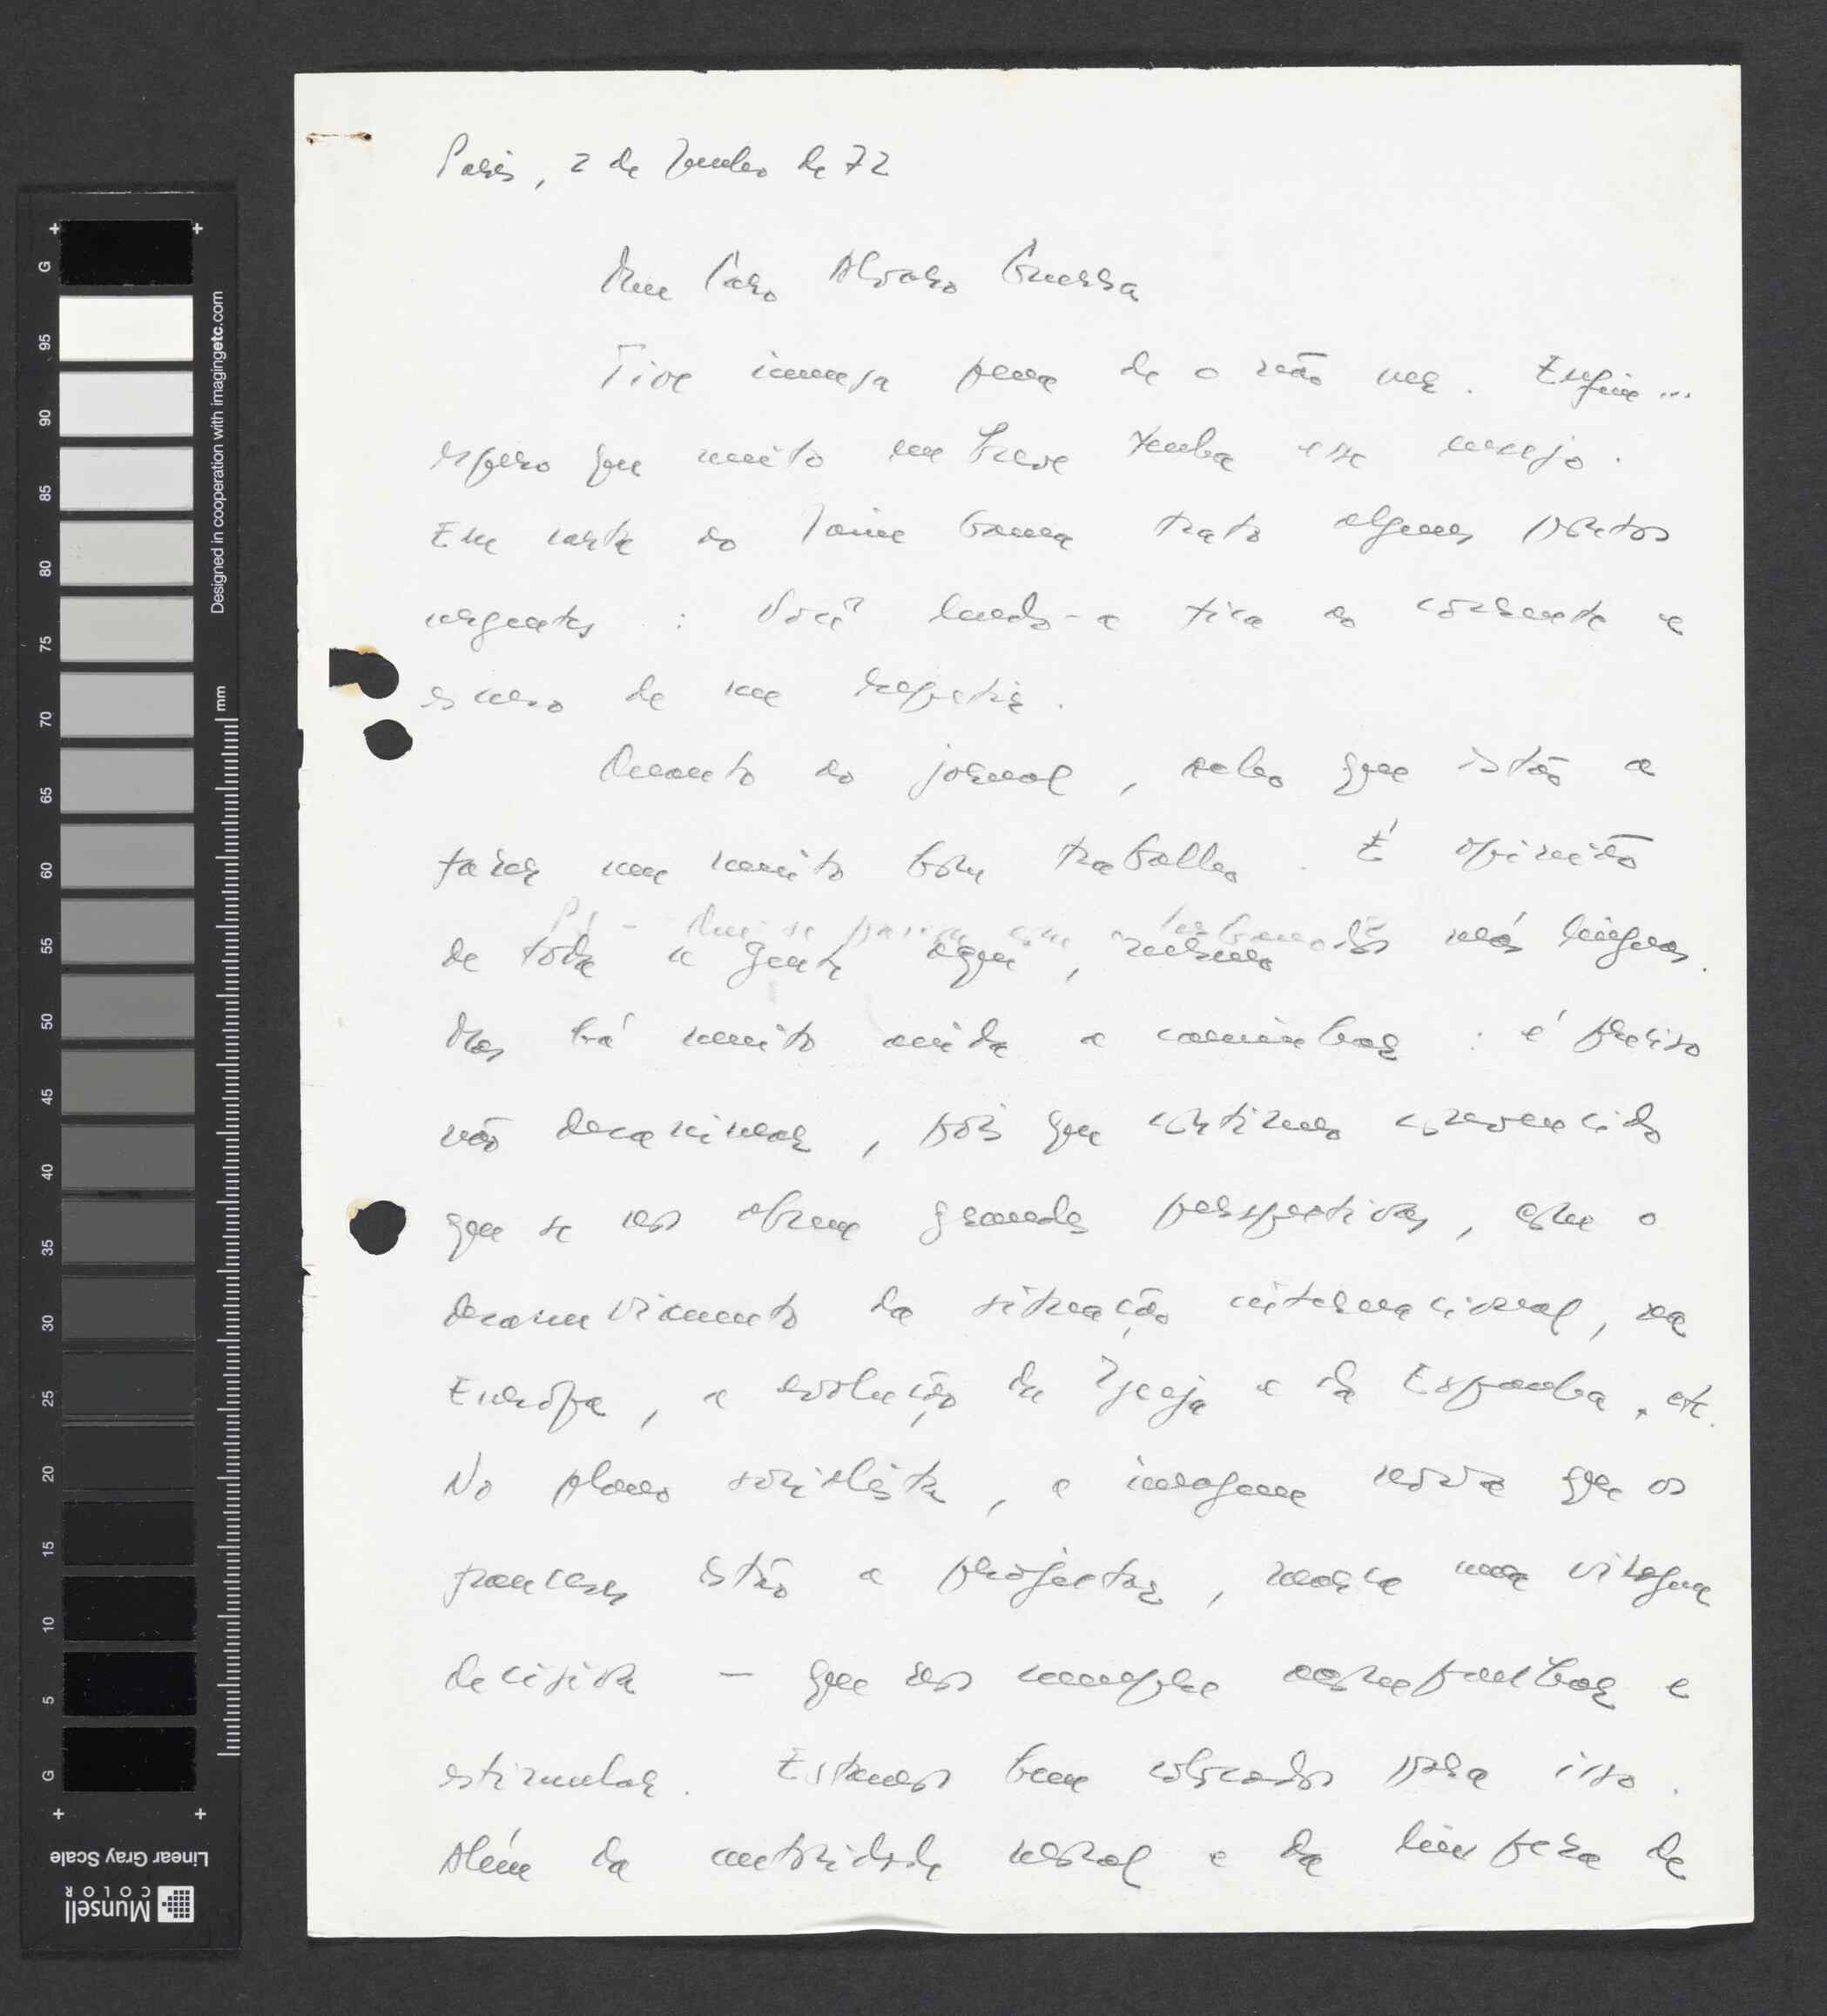 Paris, 2 de Junho de 72
Meu Caro Alvaro Guerra
Tive imensa pena de o não ver. Enfim ...
espero que muito em breve tenha esse ensejo.
Em carta ao Jaime Gama trato alguns pontos
urgentes : Você lendo-a fica ao corrente e
escuso de me repetir.
Quanto ao jornal, acho que estão a
fazer um muito bom trabalho. É opinião
de toda a gente aqui, mesmo das más línguas.
Mas há muito ainda a caminhar : é preciso
não desanimar, pois que continuo convencido
que se nos abrem grandes perspectivas, com o
desanuviamento da situação internacional, na
Europa, a evolução da Igreja e da Espanha, etc.
No plano socialista, a imagem nova que os
franceses estão a projectar, marca uma viragem
decisiva — que nos cumpre acompanhar e
estimular. Estamos bem colocados para isso.
Além da autoridade moral e da limpeza de
G 95 90 85 80 75 70 65 60 55 50 45 40 35 30 25 20 15 10 5 G
Designed in cooperation with imagingetc.com
mm
Linear Gray Scale
Munsell
COLOR